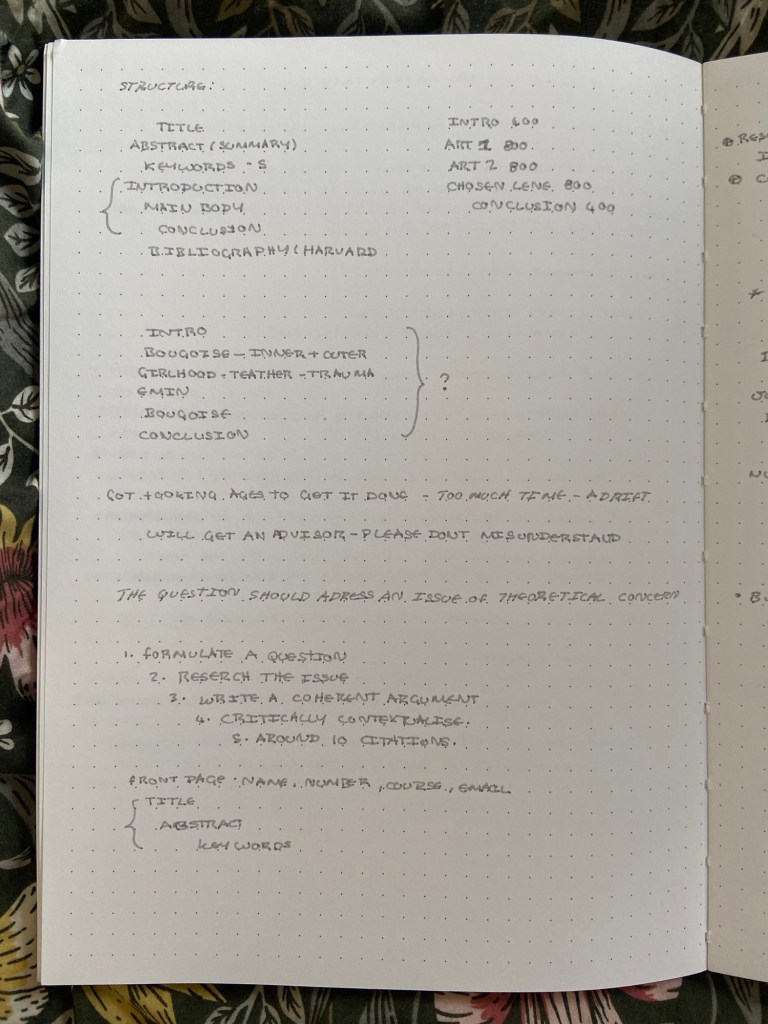 STRUCTURE:
TITLE
ABSTRACT (SUMMARY)
KEYWORDS - 5
INTRODUCTION
MAIN BODY
CONCLUSION
BIBLIOGRAPHY (HARVARD
INTRO 400
ART 1 800
ART 2 800
CHOSEN LENS 800
CONCLUSION 400
INTRO
BOUGOISE - INNER + OUTER
GIRLHOOD - TEATHER - TRAUMA
EMIN
BOUGOISE
CONCLUSION
?
AGES TO GET IT DONE - TOO MUCH TIME - ADRIFT
WILL GET AN ADVISOR - PLEASE DONT MISUNDERSTAND
THE QUESTION SHOULD ADRESS AN ISSUE OF THEORETICAL CONCERN
1. FORMULATE A QUESTION
2. RESERCH THE ISSUE
3. WRITE A COHERENT ARGUMENT
4. CRITICALLY CONTEXTUALISE.
5. AROUND 10 CITATIONS.
FRONT PAGE - NAME, NUMBER, COURSE, EMAIL
TITLE
ABSTRACT
KEYWORDS